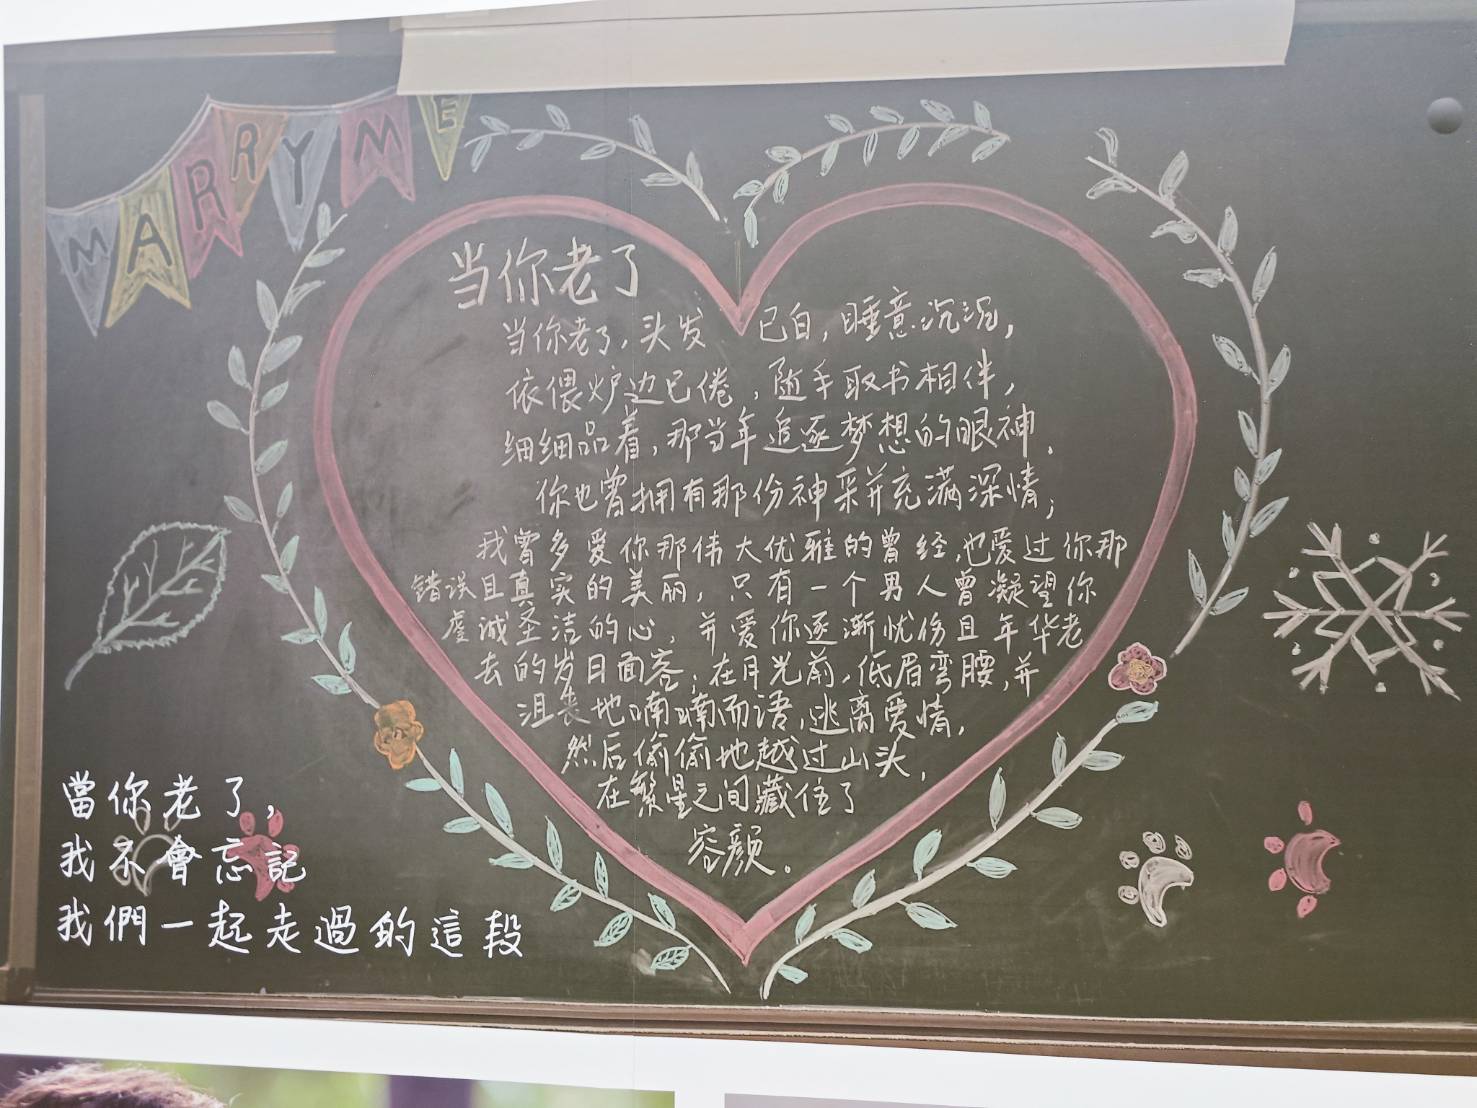 MARRY ME
当你老了
当你老了,头发 已白,睡意沉沉,
依偎炉边已倦,随手取书相伴,
细细品着,那当年追逐梦想的眼神.
你也曾拥有那份神采并充满深情;
我曾多爱你那伟大优雅的曾经,也爱过你那
错误且真实的美丽,只有一个男人曾凝望你
虔诚圣洁的心,并爱你逐渐忧伤且年华老
去的岁日面容;在月光前,低眉弯腰,并
沮丧地喃喃而语,逃离爱情,
然后偷偷地越过山头,
在繁星之间藏住了
容颜。
當你老了,
我不會忘記
我們一起走過的這段